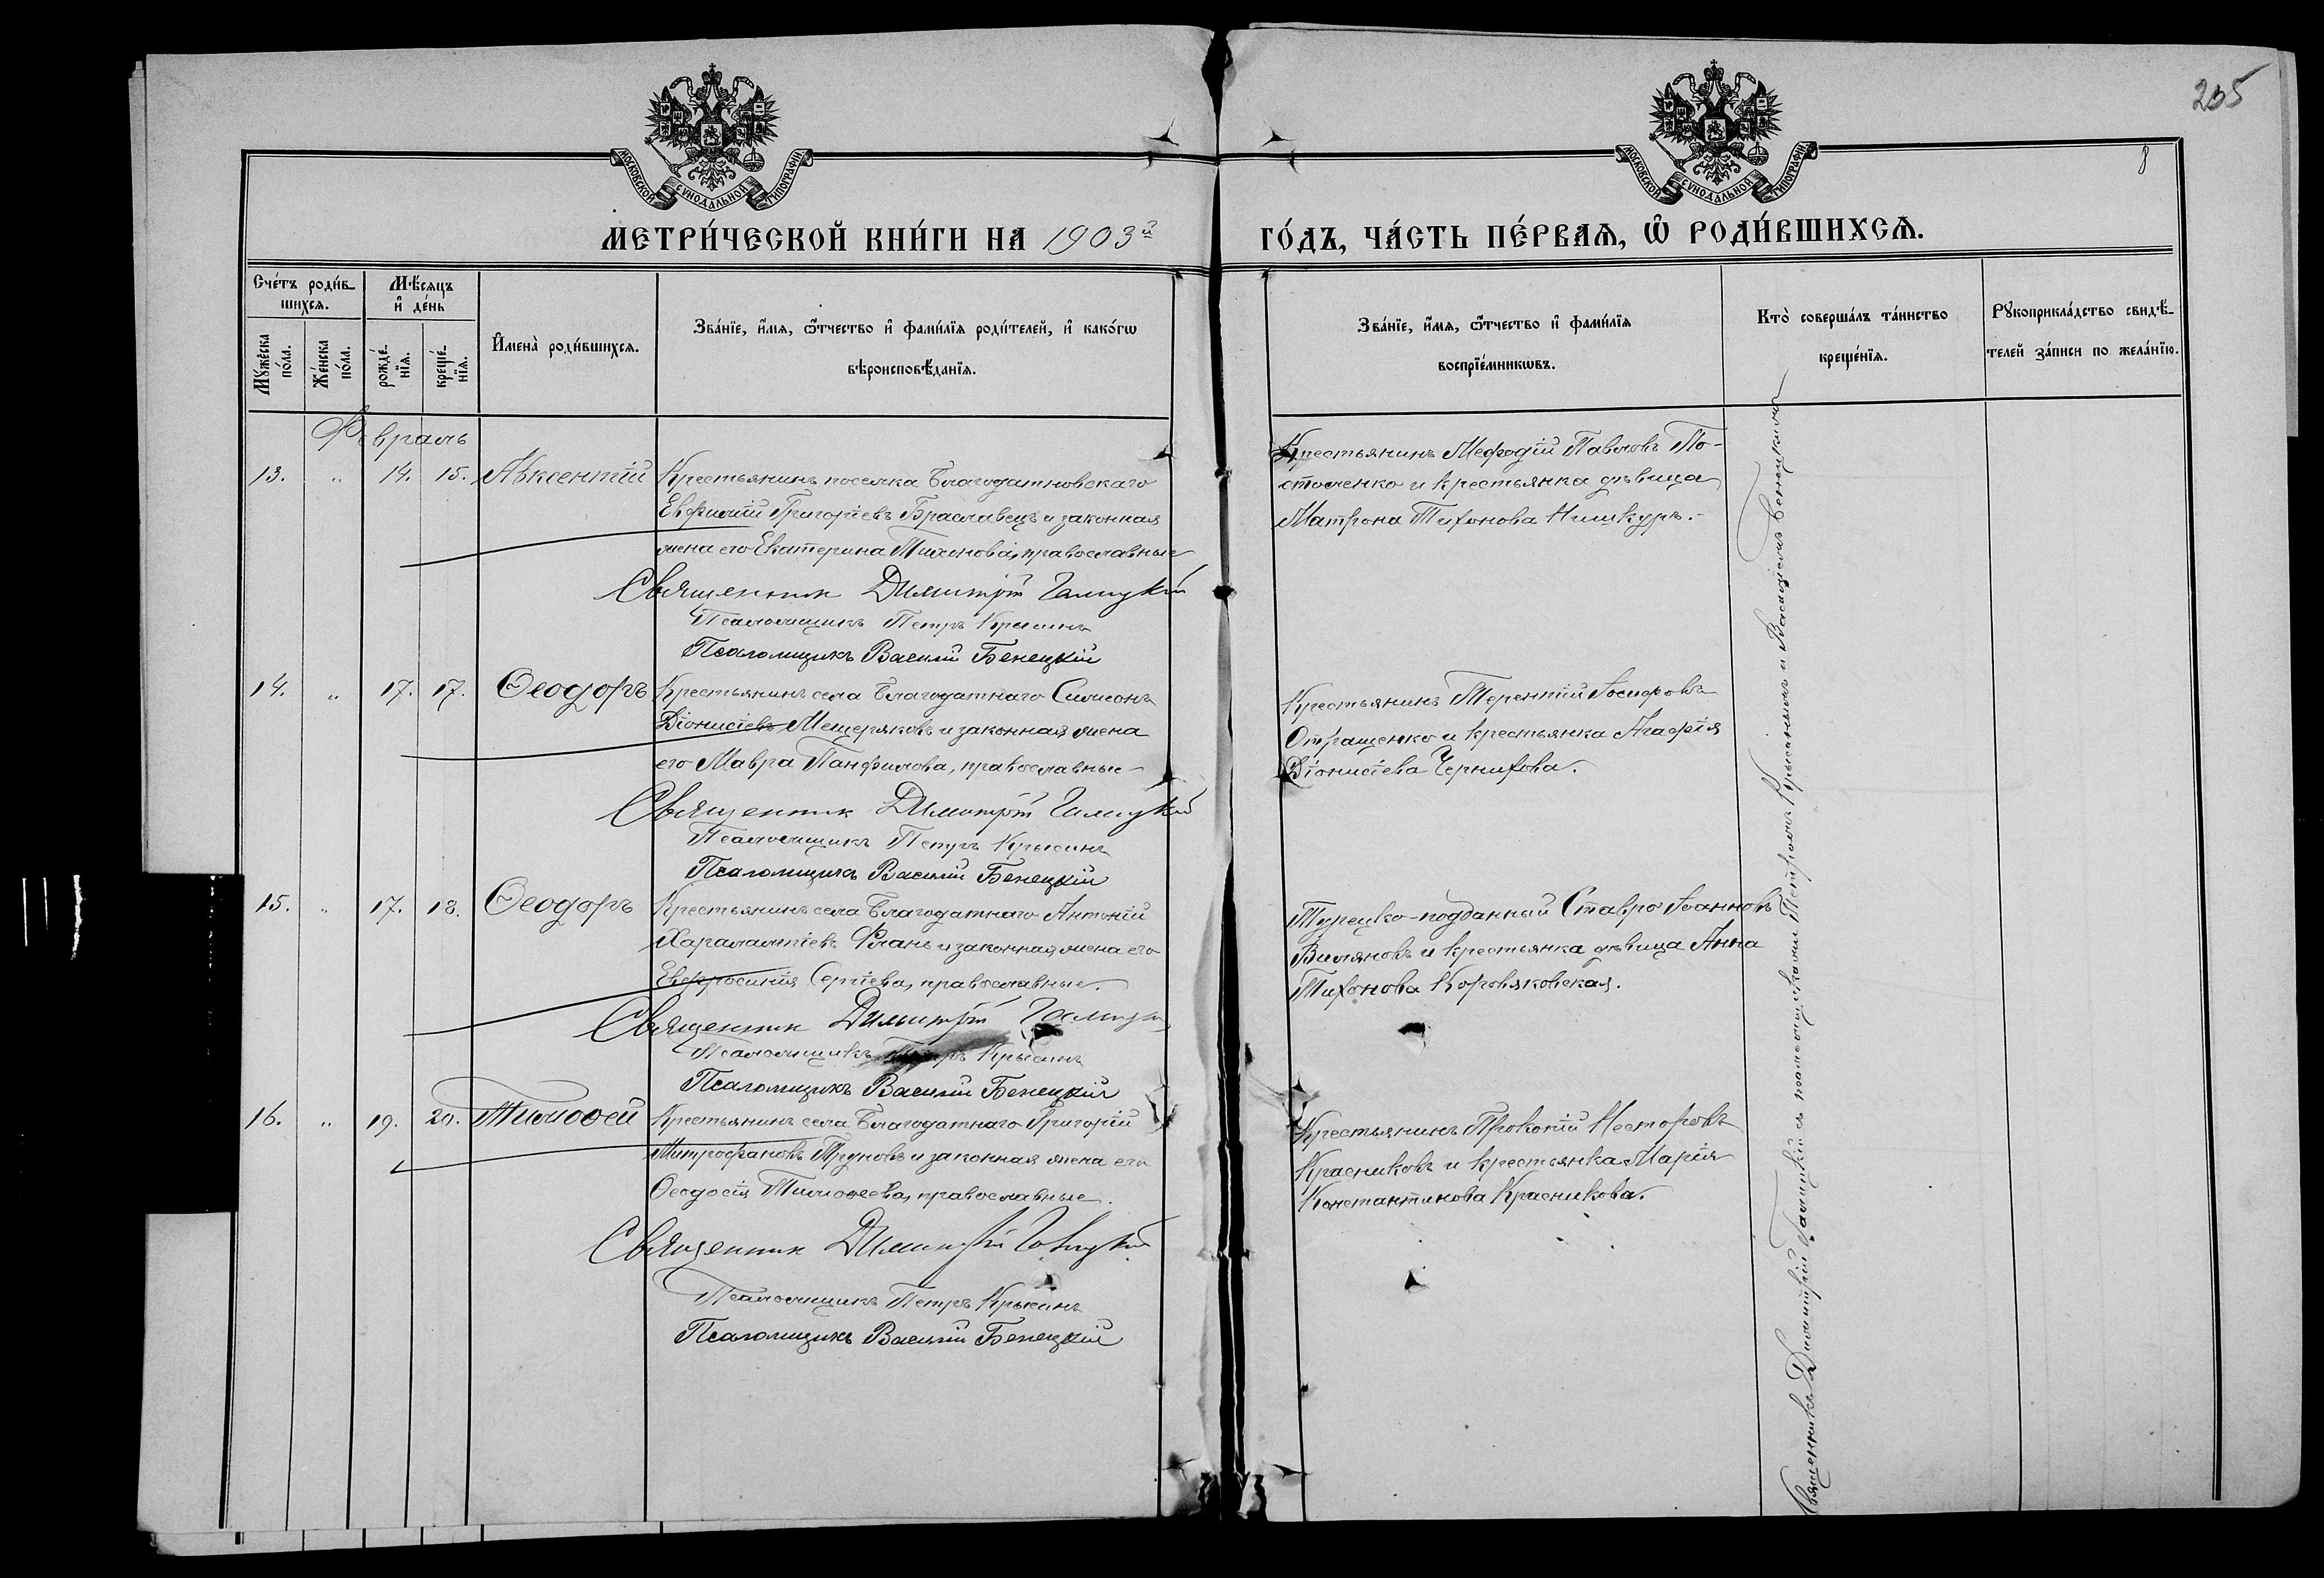 205
8
МОСКОВСКОЙ СѴНОДАЛЬНОЙ ТИПОГРАФІИ.
МОСКОВСКОЙ СѴНОДАЛЬНОЙ ТИПОГРАФІИ.
МЕТРИ́ЧЕСКОЙ КНИ́ГИ НА 1903й
ГО́ДЪ, ЧА́СТЬ ПЕ́РВАѦ, Ѽ РОДИ́ВШИХСѦ.
Сче́тъ роди́в-
шихсѧ.
Мѣ́сяцъ
и҆ де́нь
Мꙋ́жеска по́ла.
Же́нска по́ла.
рожде́-нїѧ.
креще́-нїѧ.
И҆мена̀ роди́вшихсѧ.
Зва́нїе, и҆́мѧ, ѻ҆́тчество и҆ фами́лїѧ роди́телей, и҆ како́гѡ
вѣроисповѣ́данїѧ.
Зва́нїе, и҆́мѧ, ѻ҆́тчество и҆ фами́лїѧ
воспрїе́мникѡвъ.
Кто̀ соверша́лъ та́инство
креще́нїѧ.
Рꙋкоприкла́дство свидѣ́-
телей за́писи по жела́нїю.
Февраль
13. " 14. 15. Авксентій
Крестьянинъ поселка Благодатновскаго
Евфимій Григоріевъ Браславецъ и законная
жена его Екатерина Тихонова, православные
Священник Димитрій Галицкій
Псаломщикъ Петръ Крысинъ
Псаломщикъ Василій Бенецкій
Крестьянинъ Мефодій Павловъ По-
столенко и крестьянка дѣвица
Матрона Тихонова Нишкуръ.
14. " 17. 17. Ѳеодоръ
Крестьянинъ села Благодатнаго Симеонъ
Діонисіевъ Мещеряковъ и законная жена
его Мавра Панфилова, православные
Священник Димитрій Галицкій
Псаломщикъ Петръ Крысинъ
Псаломщикъ Василій Бенецкій
Крестьянинъ Терентій Іосифовъ
Отращенко и крестьянка Агафія
Діонисіева Чернихова.
15. " 17. 18. Ѳеодоръ
Крестьянинъ села Благодатнаго Антоній
Харалампіевъ и законная жена его
Евфросинія Сергіева, православные.
Священник Димитрій Галицкій
Псаломщикъ Петръ Крысинъ
Псаломщикъ Василій Бенецкій
Турецко-подданный Ставро Іоанновъ
Виляновъ и крестьянка дѣвица Анна
Тихонова Коровяковская.
16. " 19. 20. Тимоѳей
Крестьянинъ села Благодатнаго Григорій
Митрофановъ Труновъ и законная жена его
Ѳеодосія Тимоѳеева, православные.
Священник Димитрій Галицкій
Псаломщикъ Петръ Крысинъ
Псаломщикъ Василій Бенецкій
Крестьянинъ Прокопій Несторовъ
Красниковъ и крестьянка Марія
Константинова Красникова.
Священникъ Димитрій Галицкій съ псаломщиками Петромъ Крысинымъ и Василіемъ Бенецкимъ